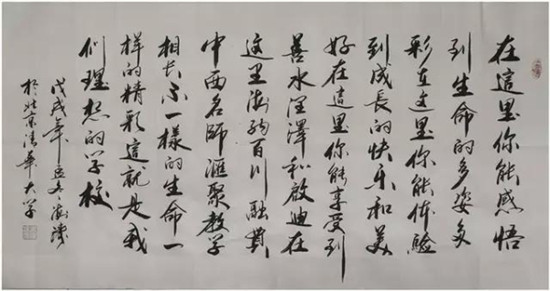 在這里你能感悟
到生命的多姿多
彩在这里你能体驗
到成長的快乐和美
好在這里你能享受到
善水润泽和啟迪在
这里海纳百川融貫
中西名師滙聚教学
相长不一樣的生命一
樣的精彩這就是我
们理想的学校
戊戌年
於北京清華大学